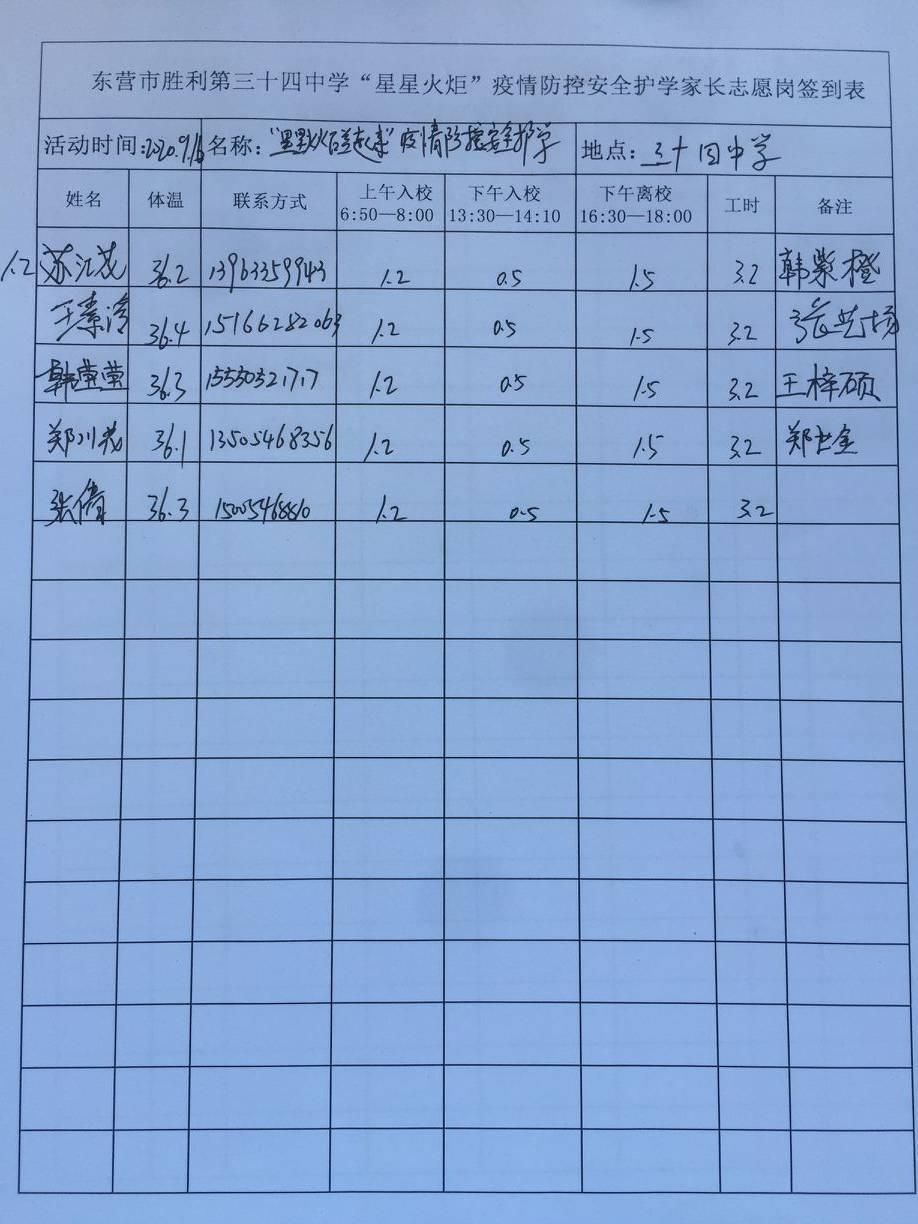 东营市胜利第三十四中学“星星火炬”疫情防控安全护学家长志愿岗签到表
活动时间:2020.9.16 名称: 疫情防控安全护学 地点: 三十四中学
姓名 体温 联系方式 上午入校 6:50—8:00 下午入校 13:30—14:10 下午离校 16:30—18:00 工时 备注
1.2 苏江茂 36.2 13963359943 1.2 0.5 1.5 3.2 韩紫橙
王素涛 36.4 15166282063 1.2 0.5 1.5 3.2 张艺场
韩莹莹 36.3 1.2 0.5 1.5 3.2 王梓硕
郑川茂 36.1 13505468356 1.2 0.5 1.5 3.2 郑世金
张倩 36.3 1.2 0.5 1.5 3.2